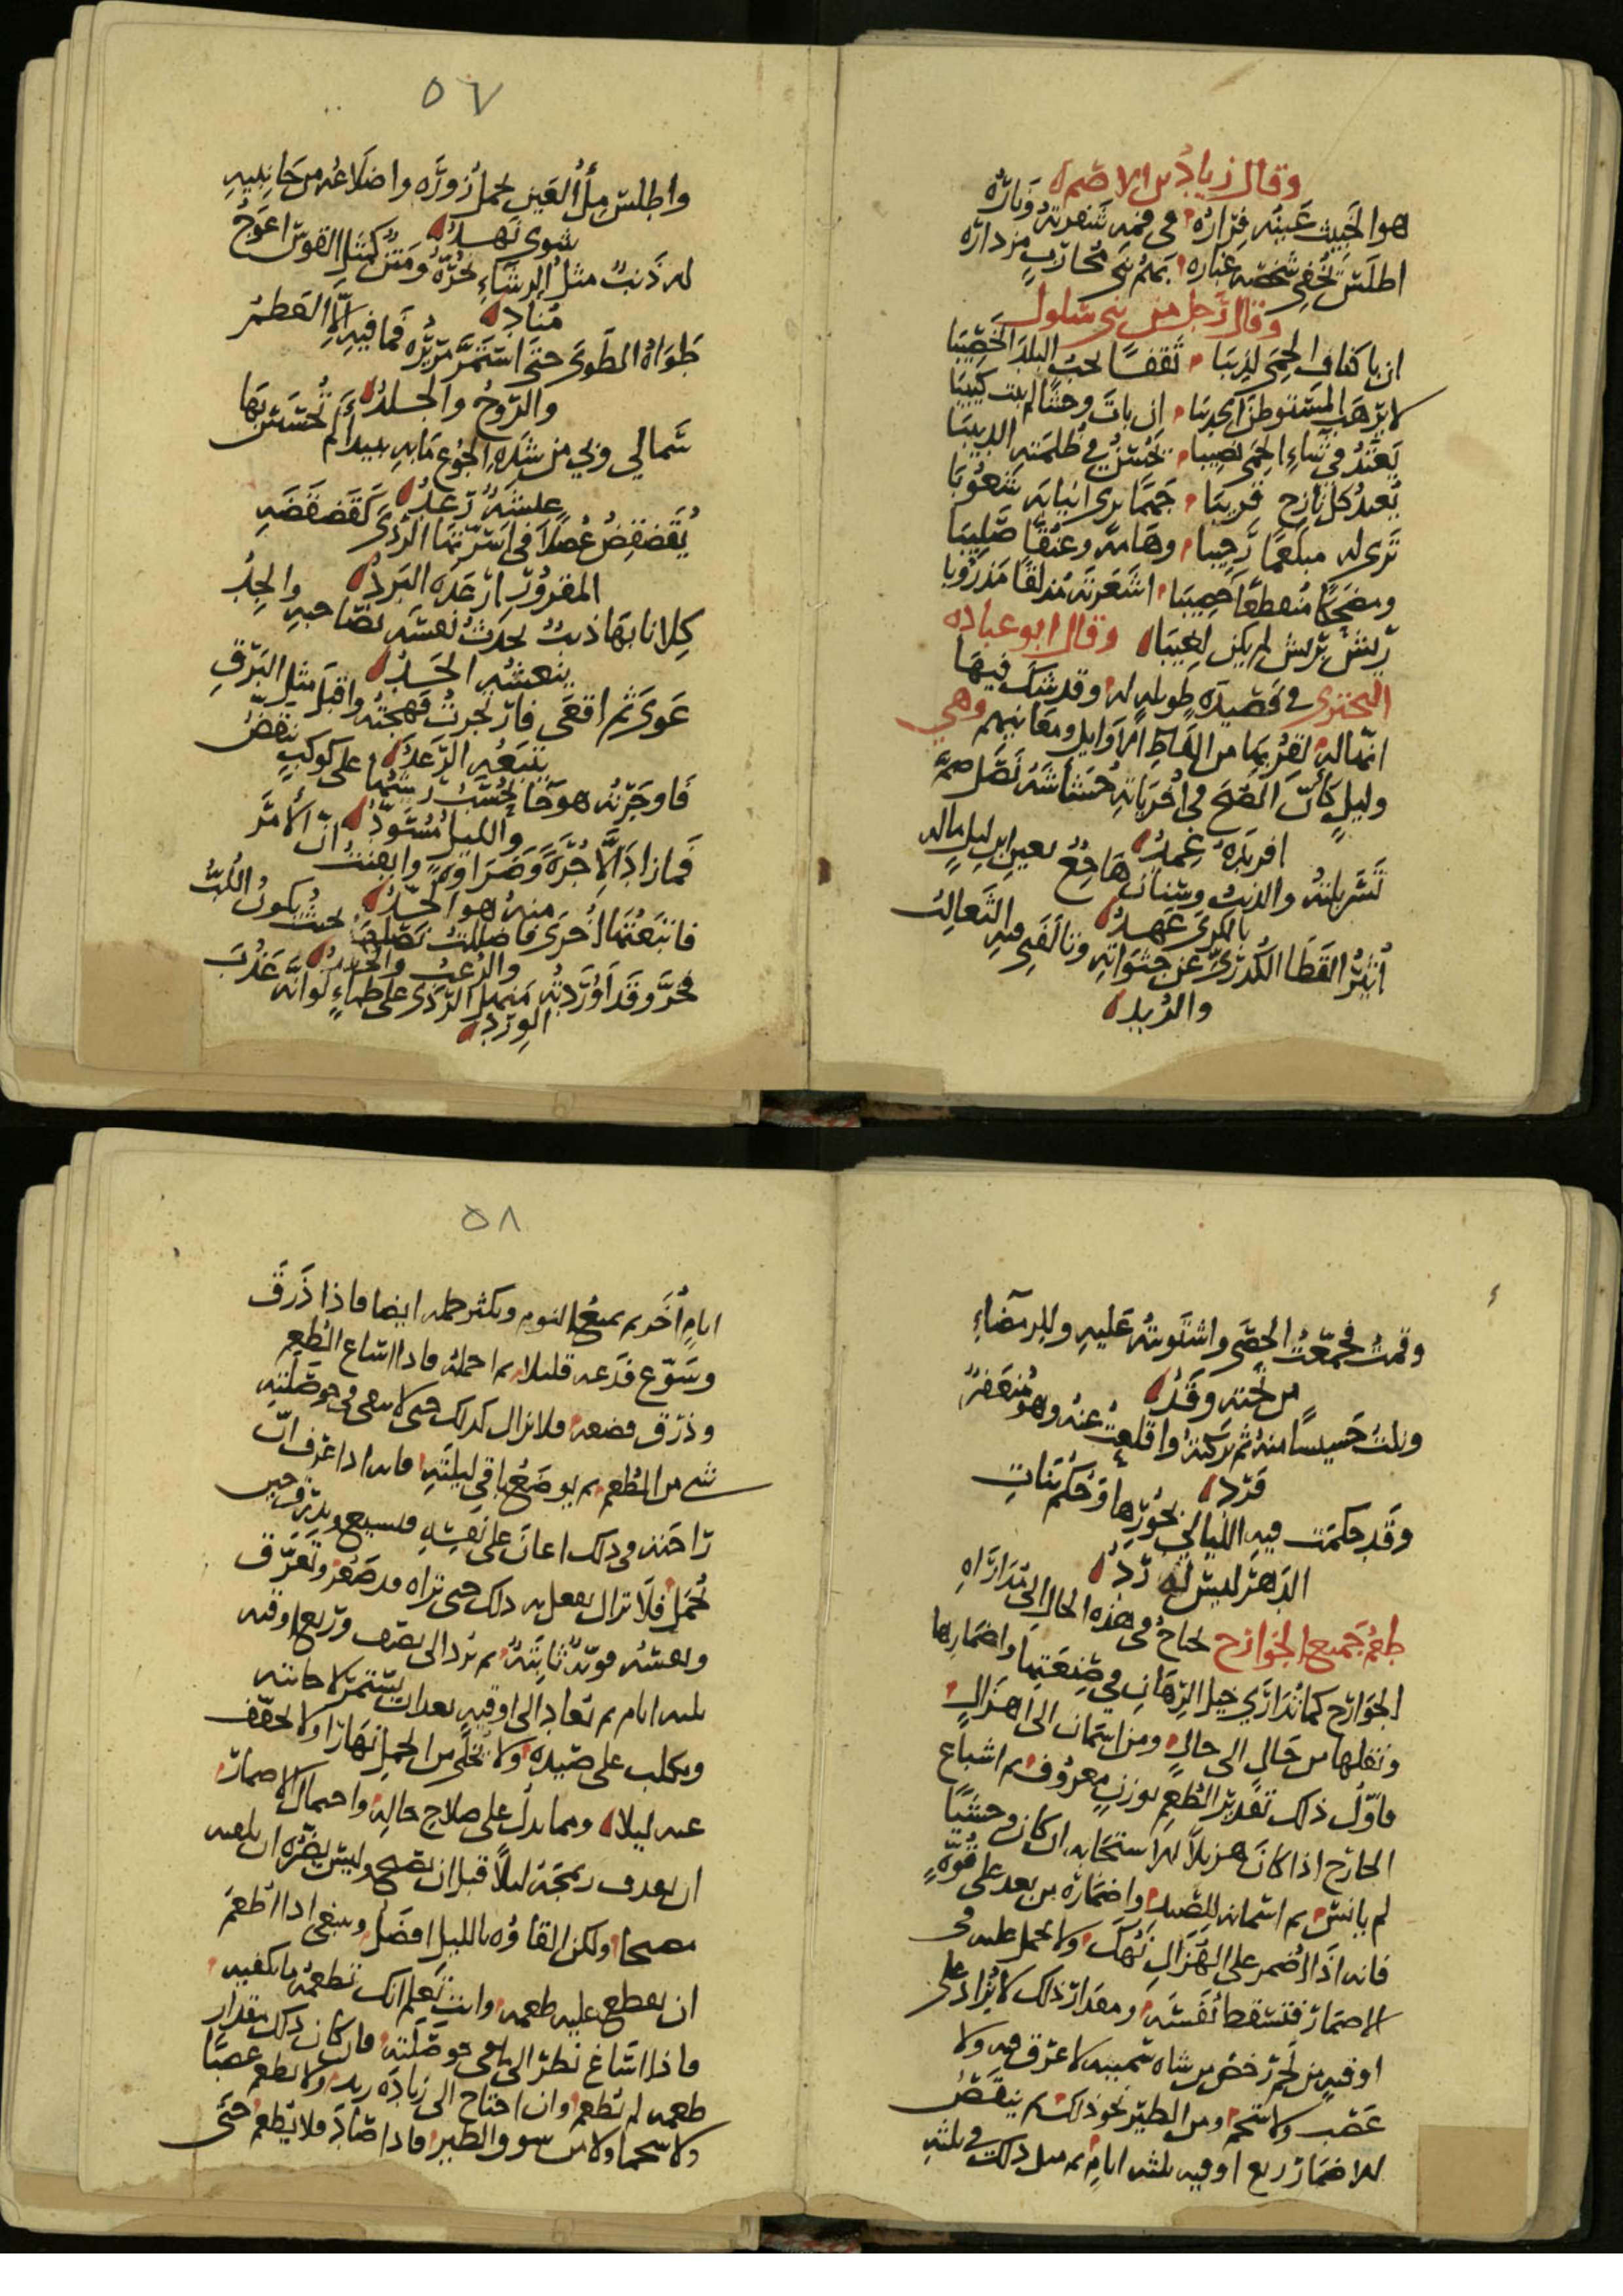 وقال زياد بن الاصم
هو الخبيث عينه فراره في فمه شفرته وناره
اطلس يخفي شخصه غباره بهم بني محارب مزداره
وقال رجل من بني سلول
ان باكناف الحمى لذيبا ثقفا يحب البلد الخصيبا
لا يرهب المستوطن ان بات وحشا لم يبت كئيبا
يعتد في شاء الحمى نصيبا في ظلمته الدبيبا
بعيد كل نازح قريبا انيابه شعوبا
ترى له مبلعما رحيبا وهامة وعنقا صليبا
ومضحكا مذروبا
لم يكن لغيبا وقال ابو عباده
البحتري في قصيدة طويله له وقد شك فيها
انها له لقربها من الفاظ الاوايل ومعانيهم وهي
وليل كأن الصبح في اخرياته حشاشة نصل ضم
افرنده غمد
تسربلته والذيب وسنان هاجع بعين ابن ليل ماله
بالكرى عهد
أثير القطا الكدري عن جثواته وتألفني فيه الثعالب
والربد
٥٧
واطلس ملأ العين يحمل زوره واضلاعه من جانبيه
شوى نهد
له ذنب مثل الرشاء يجره ومتن كمثل القوس اعوج
مناد
طواه الطوى حتى استمر مريره فما فيه الا العظم
والروح والجلد
سما لي وبي من شدة الجوع ما به ببيداء لم تحسس بها
عيشة رغد
يقضقض عصلا في اسرتها الردى كقضقضة
المقرور ارعده البرد
كلانا بها ذيب يحدث نفسه بصاحبه والجد
يتعسه الجد
عوى ثم اقعى فارتجزت فهجته واقبل مثل البرق
يتبعه الرعد
فاوجرته هوجا تحسب ريشها على كوكب ينقض
والليل مسود
فما زاد الا جرة وصرامة وايقنت ان الامر
منه هو الجد
فاتبعتها اخرى فاضللت نصلها بحيث يكون اللب
والرعب والحقد
فخر وقد اوردته منهل الردى على ظماء لو انه عذب
الورد
وقمت فجمعت الحصى واشتويته عليه وللرمضاء
من تحته وقد
ونلت خسيسا منه ثم تركته واقلعت عنه وهو منعفر
فرد
وقد حكمت فيه الليالي بجورها وحكم بنات
الدهر ليس له رد
طعم جميع الجوارح تحتاج في هذه الحال الى مداراه
الجوارح كما تداري خيل الرهان في صنعتها واضمارها
وتنقلها من حال الى حال ومن اسمان الى اهزال
فاول ذلك تقدير الطعم بوزن معروف ثم اشباع
الجارح اذا كان هزيلا ان كان وحشيا
لم يانس ثم اسمانه للصيد واضماره من بعد على قوة
فانه اذا اضمر على الهزال نهك ولا يحمل عليه في
الاضمار فتسقط نفسه ومقدار ذلك لا يزاد على
اوقيه من لحم رخص من شاه سمينه لا عرق فيه ولا
عصب ولا شحم ومن الطير نحو ذلك ثم ينقص
للاضمار ربع اوقيه ثلثه ايام ثم مثل ذلك في ثلثه
٥٨
ايام أخر ثم يمنع النوم ويكثر حمله ايضا فاذا ذرق
وسوع فدعه قليلا ثم احمله فاذا اساغ الطعم
وذرق فضعه فلا تزال كذلك حتى لا يبقى في حوصلته
شي من الطعم ثم يوضع باقي ليلته فانه اذا عرف ان
راحته في ذلك اعان على نفسه ويذرق حين
يحمل فلا تزال تفعل به ذلك حتى تراه قد ضمر وتعرف
ونفسه قويه ثابته ثم نرد الى نصف وربع اوقيه
ثلثه ايام ثم تعاد الى اوقيه بعد ان يستمر لاجابته
ويكلب على صيده ولا تخلى من الحمل نهارا ولا يخفف
عنه ليلا ومما يدل على صلاح حاله واحتمال الاضمار
ان يقذف رمجته ليلا قبل ان يصبح وليس يضره ان يلقيه
مصبحا ولكن القاوه بالليل افضل وينبغي اذا اطعم
ان يقطع عليه طعمه وانت تعلم انك تطعمه ما يكفيه
فاذا اساغ نظر الى ما في حوصلته فان كان ذلك مقدار
طعمه لم تطعم وان احتاج الى زيادة زيد ولا يطعم عصبا
ولا شحما ولا من الطير فاذا صاد فلا يطعم حتى